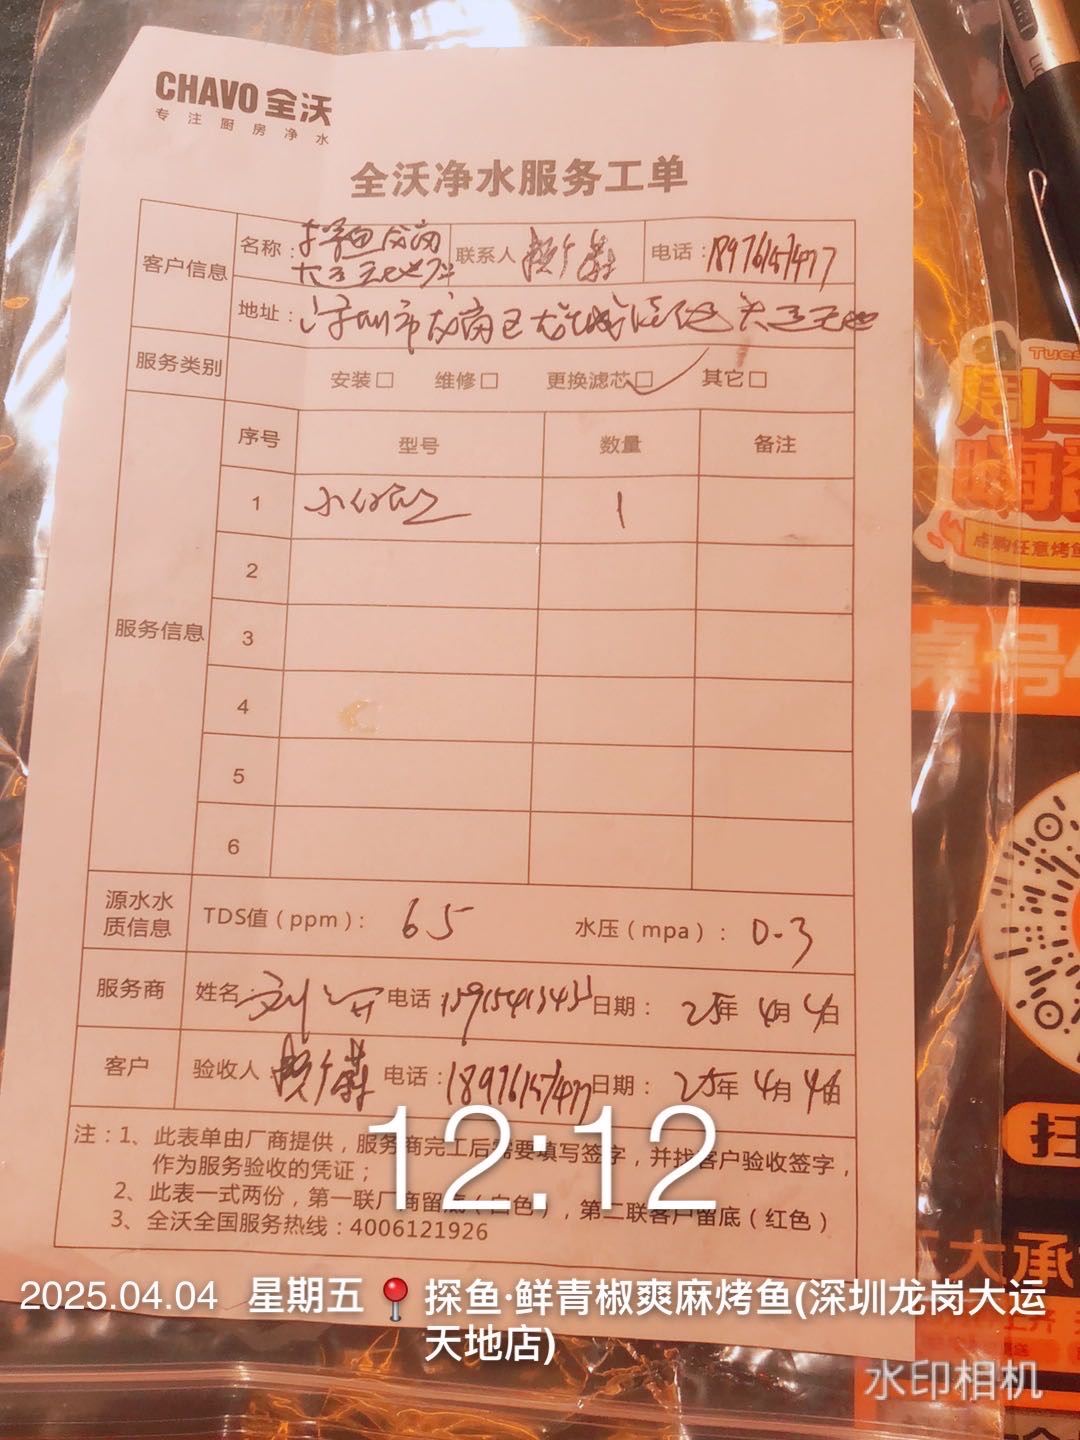 CHAVO 全沃
专注厨房净水
全沃净水服务工单
客户信息 名称：探鱼龙岗大运天地店 联系人 电话：18976157477
地址：深圳市龙岗区龙城街道大运天地
服务类别 安装□ 维修□ 更换滤芯□✓ 其它□
服务信息 序号 型号 数量 备注
1 1
2
3
4
5
6
源水水质信息 TDS值（ppm）： 65 水压（mpa）： 0.3
服务商 姓名： 电话： 日期： 25年 4月 4日
客户 验收人： 电话：18976157477 日期： 25年 4月 4日
注：1、此表单由厂商提供，服务商完工后需要填写签字，并找客户验收签字，
作为服务验收的凭证；
2、此表一式两份，第一联厂商留底（白色），第二联客户留底（红色）
3、全沃全国服务热线：4006121926
12:12
2025.04.04 星期五 探鱼·鲜青椒爽麻烤鱼(深圳龙岗大运
天地店)
水印相机
Tues
周二
嗨
点购任意烤鱼
桌号4
扫
大承